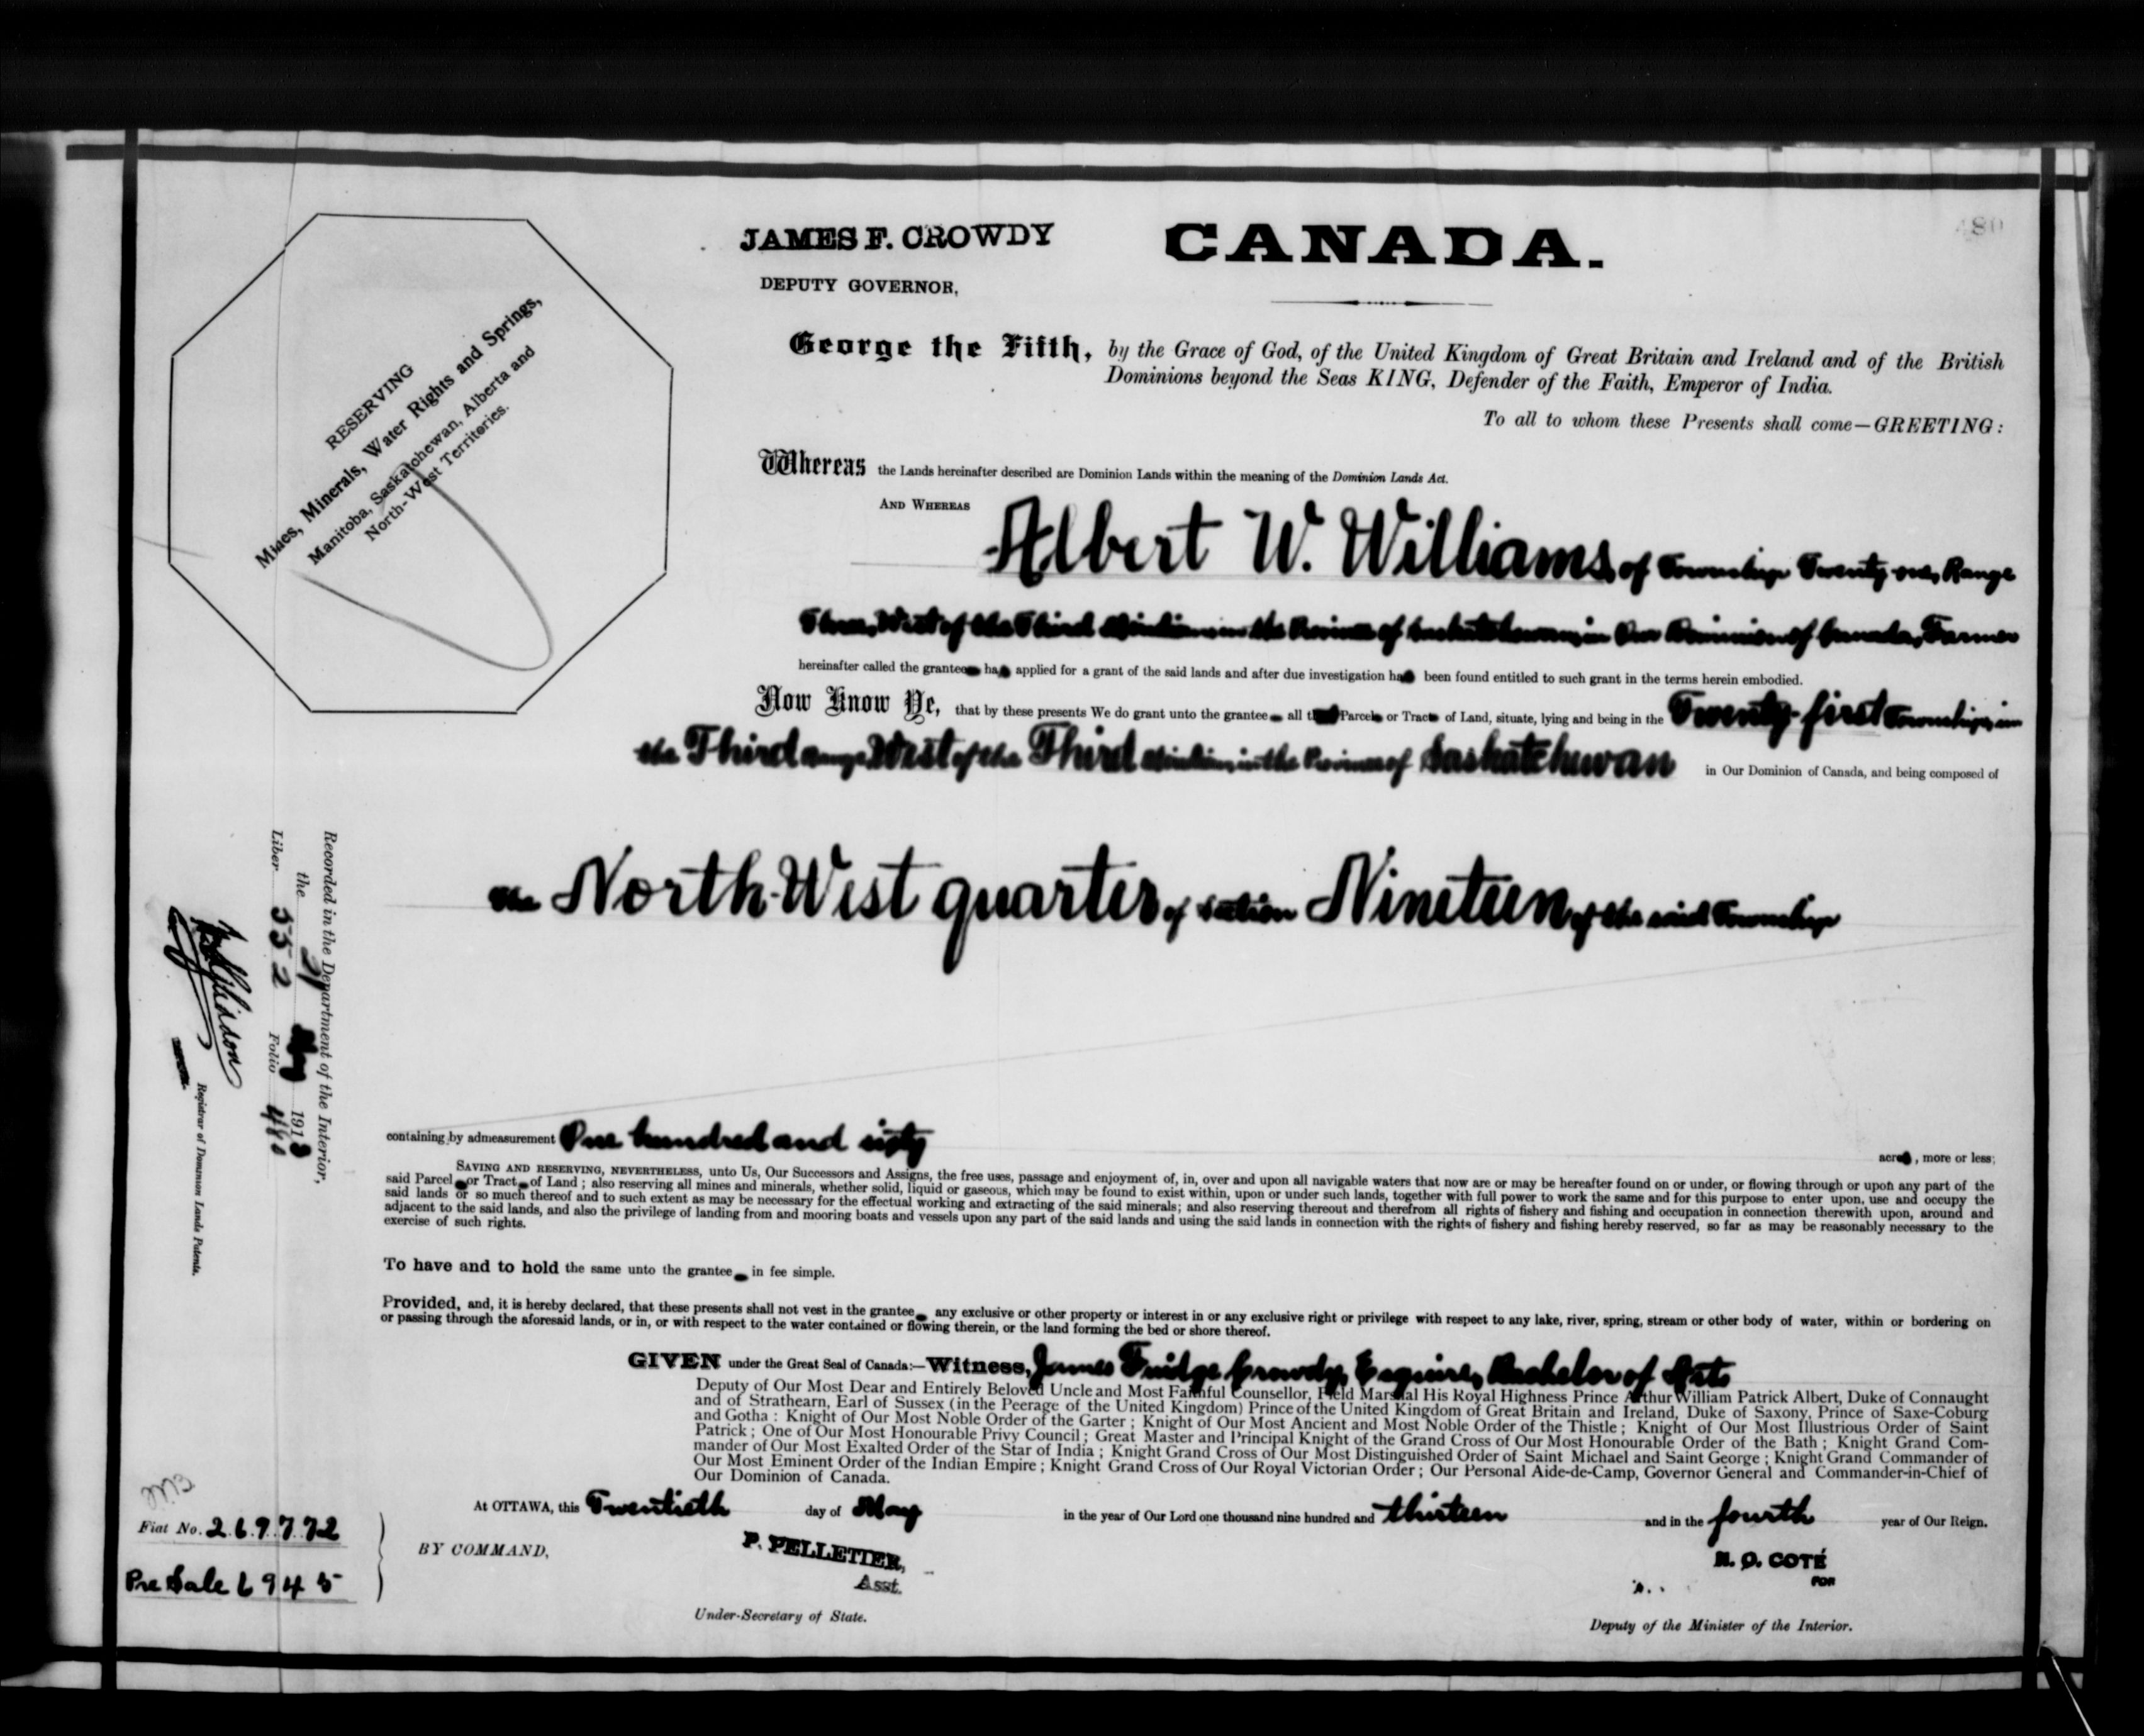 480
JAMES F. CROWDY
CANADA.
DEPUTY GOVERNOR,
RESERVING
Mines, Minerals, Water Rights and Springs,
Manitoba, Saskatchewan, Alberta and
North-West Territories.
George the Fifth, by the Grace of God, of the United Kingdom of Great Britain and Ireland and of the British
Dominions beyond the Seas KING, Defender of the Faith, Emperor of India.
To all to whom these Presents shall come—GREETING:
Whereas the Lands hereinafter described are Dominion Lands within the meaning of the Dominion Lands Act.
AND WHEREAS Albert W. Williams, of Township Twenty-one, Range
Three, West of the Third Meridian in the Province of Saskatchewan, in Our Dominion of Canada, Farmer
hereinafter called the grantee has applied for a grant of the said lands and after due investigation has been found entitled to such grant in the terms herein embodied.
Now Know Ye, that by these presents We do grant unto the grantee all that Parcel or Tract of Land, situate, lying and being in the Twenty-first Township, in
the Third range West of the Third Meridian, in the Province of Saskatchewan in Our Dominion of Canada, and being composed of
the North-West quarter of section Nineteen of the said Township
Recorded in the Department of the Interior,
the 21 May 1913
Liber 552 Folio 480
Registrar of Dominion Lands Patents.
containing by admeasurement One hundred and sixty acres, more or less;
SAVING AND RESERVING, NEVERTHELESS, unto Us, Our Successors and Assigns, the free uses, passage and enjoyment of, in, over and upon all navigable waters that now are or may be hereafter found on or under, or flowing through or upon any part of the
said Parcel or Tract of Land; also reserving all mines and minerals, whether solid, liquid or gaseous, which may be found to exist within, upon or under such lands, together with full power to work the same and for this purpose to enter upon, use and occupy the
said lands or so much thereof and to such extent as may be necessary for the effectual working and extracting of the said minerals; and also reserving thereout and therefrom all rights of fishery and fishing and occupation in connection therewith upon, around and
adjacent to the said lands, and also the privilege of landing from and mooring boats and vessels upon any part of the said lands and using the said lands in connection with the rights of fishery and fishing hereby reserved, so far as may be reasonably necessary to the
exercise of such rights.
To have and to hold the same unto the grantee in fee simple.
Provided, and, it is hereby declared, that these presents shall not vest in the grantee any exclusive or other property or interest in or any exclusive right or privilege with respect to any lake, river, spring, stream or other body of water, within or bordering on
or passing through the aforesaid lands, or in, or with respect to the water contained or flowing therein, or the land forming the bed or shore thereof.
GIVEN under the Great Seal of Canada:—Witness, James Fuidge Crowdy, Esquire, Bachelor of Arts
Deputy of Our Most Dear and Entirely Beloved Uncle and Most Faithful Counsellor, Field Marshal His Royal Highness Prince Arthur William Patrick Albert, Duke of Connaught
and of Strathearn, Earl of Sussex (in the Peerage of the United Kingdom) Prince of the United Kingdom of Great Britain and Ireland, Duke of Saxony, Prince of Saxe-Coburg
and Gotha: Knight of Our Most Noble Order of the Garter; Knight of Our Most Ancient and Most Noble Order of the Thistle; Knight of Our Most Illustrious Order of Saint
Patrick; One of Our Most Honourable Privy Council; Great Master and Principal Knight of the Grand Cross of Our Most Honourable Order of the Bath; Knight Grand Com-
mander of Our Most Exalted Order of the Star of India; Knight Grand Cross of Our Most Distinguished Order of Saint Michael and Saint George; Knight Grand Commander of
Our Most Eminent Order of the Indian Empire; Knight Grand Cross of Our Royal Victorian Order; Our Personal Aide-de-Camp, Governor General and Commander-in-Chief of
Our Dominion of Canada.
At OTTAWA, this Twentieth day of May in the year of Our Lord one thousand nine hundred and thirteen and in the fourth year of Our Reign.
Fiat No. 269772
BY COMMAND,
P. PELLETIER,
Asst.
Under-Secretary of State.
N. O. COTÉ
FOR
Deputy of the Minister of the Interior.
Pre Sale 6945